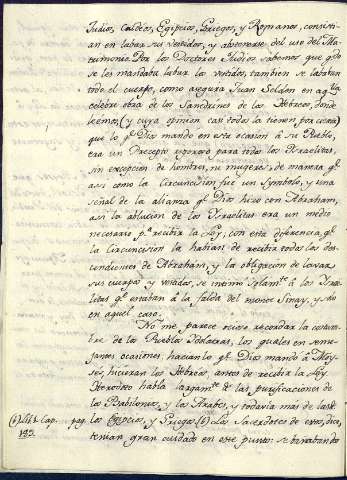 Judios, Caldéos, Egipcios, Griegos, y Romanos, consisti-
an en labar sus vestidos, y abstenerse del uso del Ma-
trimonio. Por los Doctores Judios sabemos que qdo
se les mandaba labar los vestidos, tambien se lababan
todo el cuerpo, como asegura Juan Seldon en aqlla
celebre obra de los Sanedrines de los Hebreos, donde
leemos, (y cuya opinion casi todos la tienen por cierta)
que lo q.e Dios mando en esta ocasion á su Pueblo,
era un Precepto rigoroso para todos los Ysraelitas,
sin excepcion de hombres, ni mugeres, de manera q.e
asi como la Circuncision fué un Symbolo, y una
señal de la alianza q.e Dios hizo con Abraham,
asi la ablucion de los Ysraelitas era un medio
necesario p.a recibir la Ley, con esta diferencia q.e
la Circuncision la habian de recibir todos los des-
cendientes de Abraham, y la obligacion de lavar
sus cuerpos y vestidos, se solam.te á los Ysrae-
litas q.e estaban á la falda del monte Sinay, y solo
en aquel caso.
No me parece ocioso recordar la costum-
bre de los Pueblos Ydolatras, los quales en seme-
jantes ocasiones, hacian lo q.e Dios mandó á Moy-
ses, hicieran los Hebreos antes de recibir la Ley.
Herodoto habla largam.te de las purificaciones de
los Babilonios, y los Arabes, y todavia mas de las de
(6) Lib. 2. Cap. pag. 123. los Egipcios, y Griegos (6) Los Sacerdotes de estos, dice,
tenian gran cuidado en este punto: se